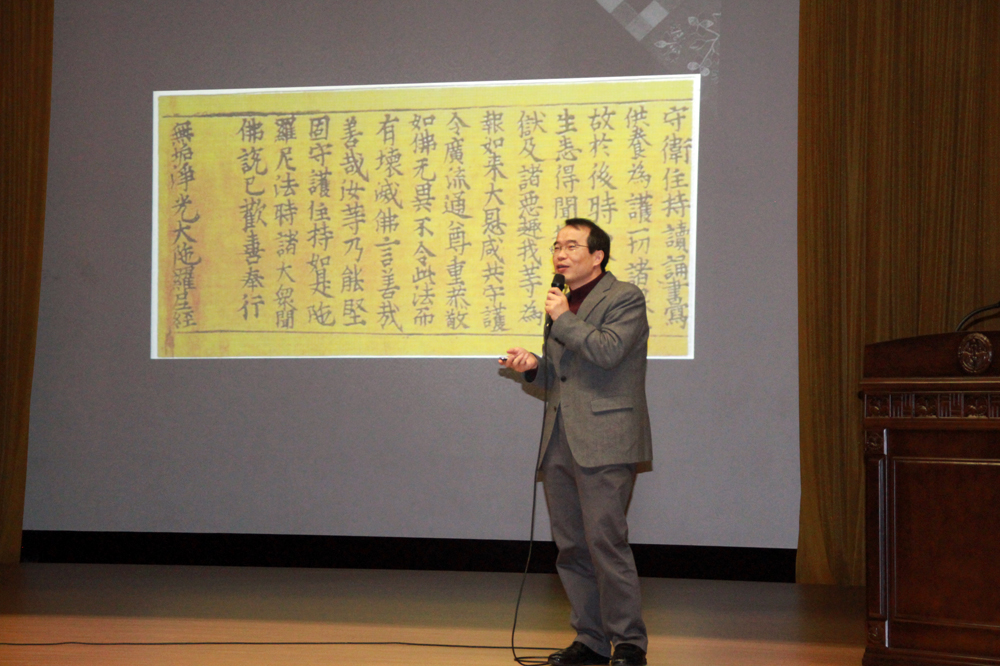 守衛住持讀誦書寫
供養為護一切諸
故於後時
生悉得聞
獄及諸惡趣我等為
報如来大恩咸共守護
令廣流通尊重恭敬
如佛无異不令此法而
有壞滅佛言善哉
善哉汝等乃能堅
固守護住持如是陁
羅尼法時諸大衆聞
佛説已歡喜奉行
無垢淨光大陁羅尼經